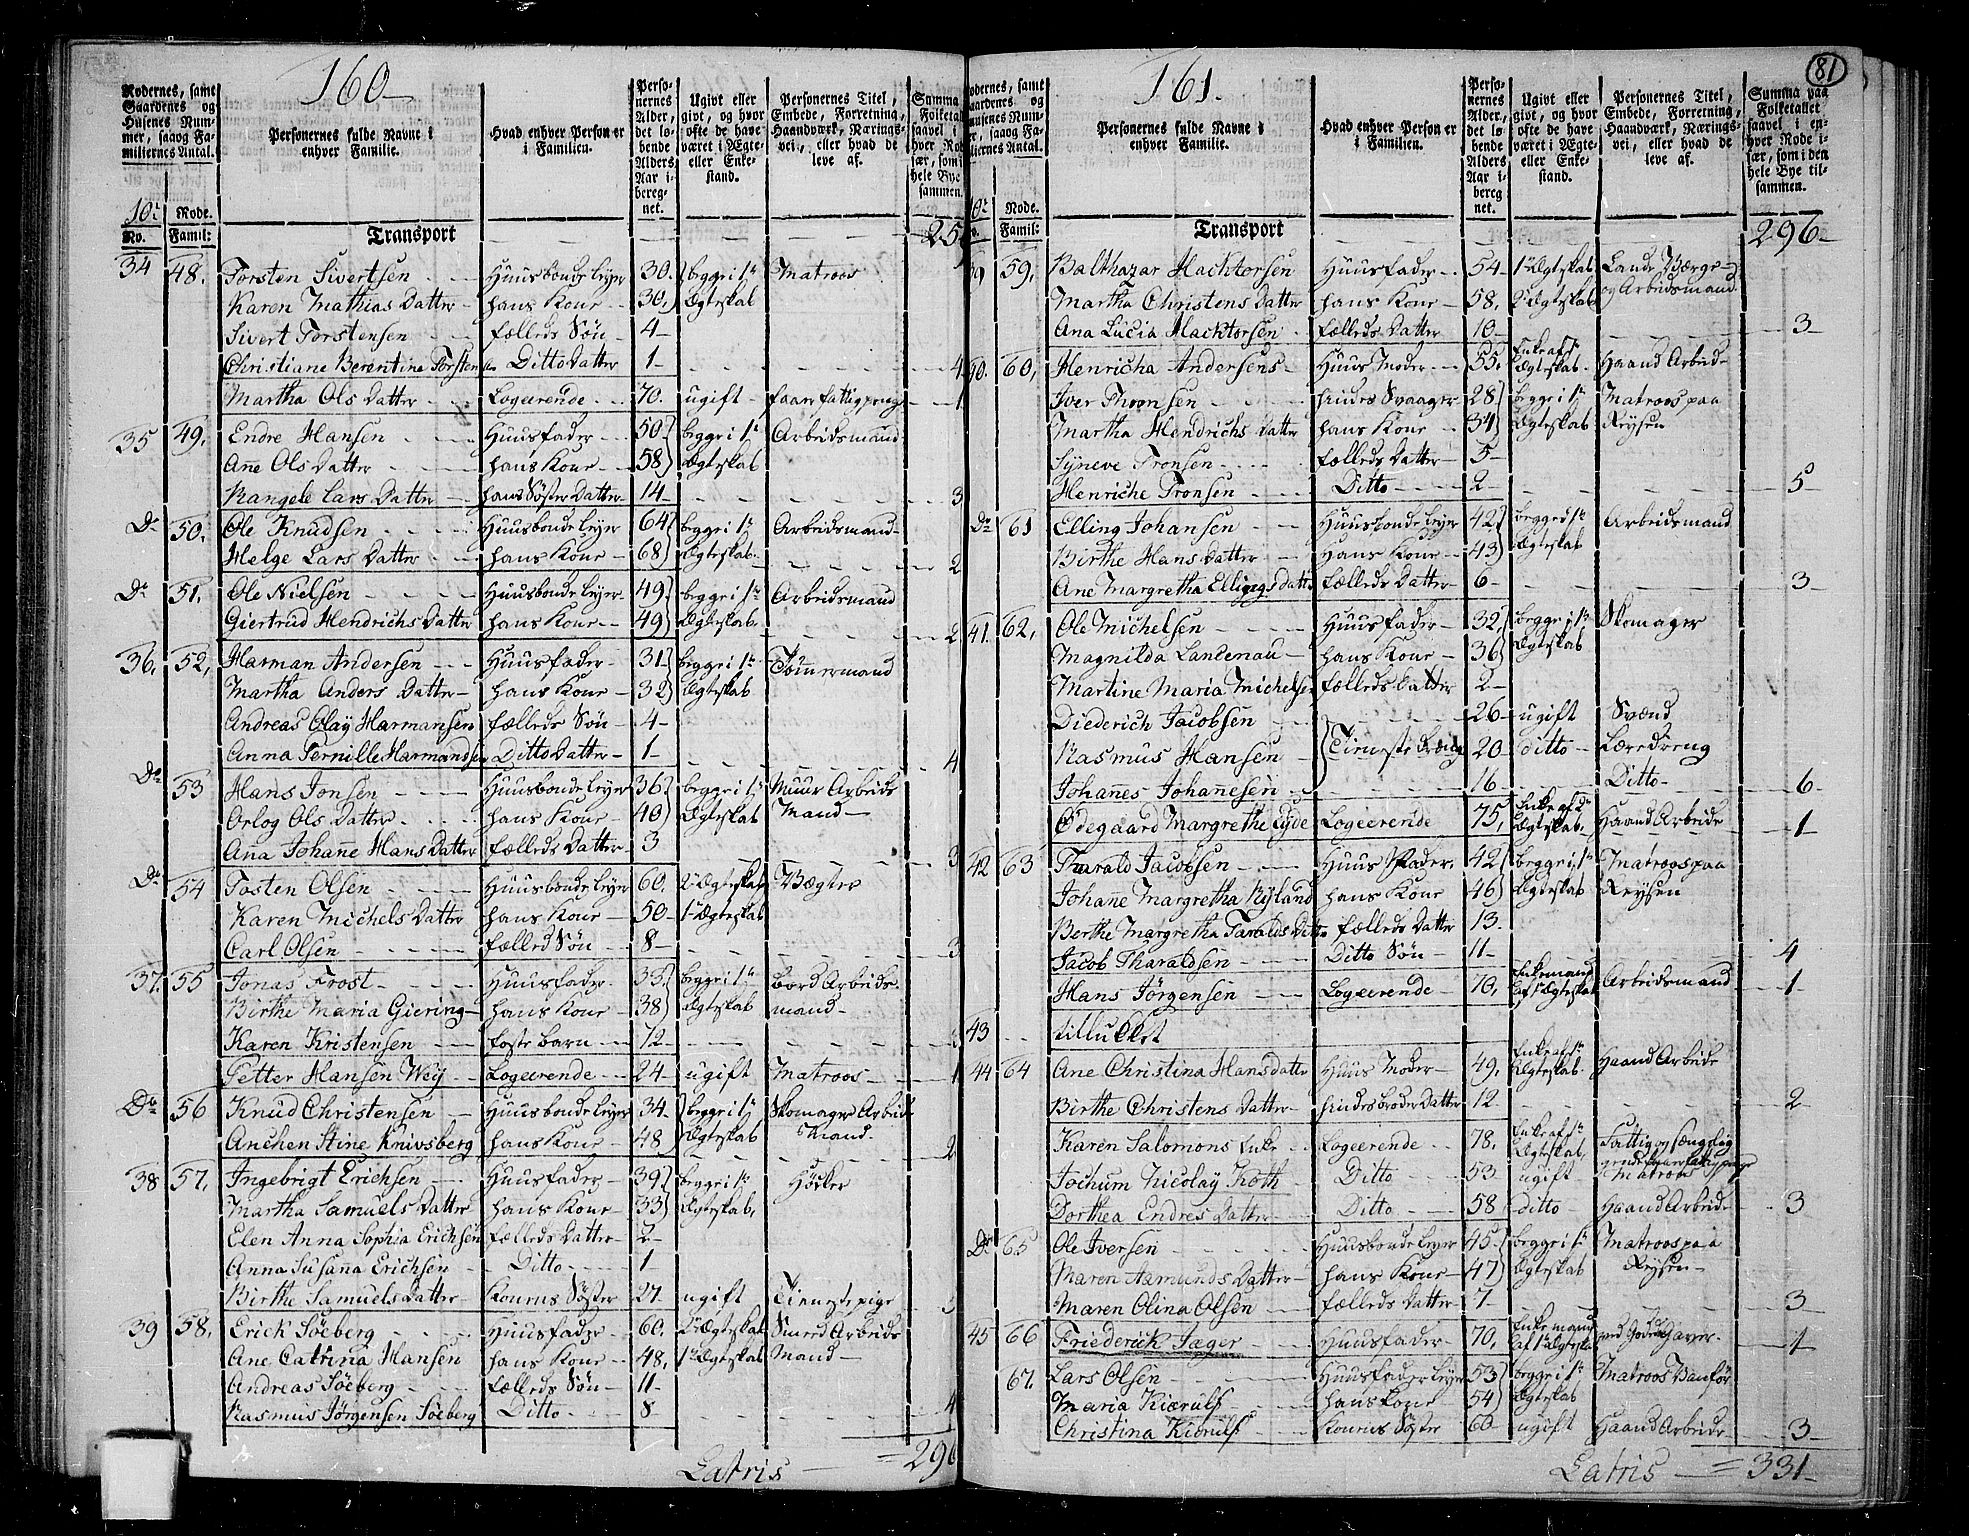 160
Rodernes, samt Gaardenes og Husenes Nummer, saavog Familiernes Antal.
Personernes fulde Navne i enhver Familie.
Hvad enhver Person er i Familien.
Personernes Alder, det løbende Alders Aar iberegnet.
Ugivt eller givt, og hvor ofte de have været i Ægte- eller Enkestand.
Personernes Titel, Embede, Forretning, Haandværk, Næringsvei, eller hvad de leve af.
Summa Folketal saavel i hver Rode især, som i hele Bye sammen.
10de Rode.
No. Famil:
Transport 25
34 48. Torsten Sivertsen Huusbonde Leyer 30. begge i 1te Matroos
Karen Mathias Datter hans Kone 30. Ægteskab
Sivert Torstensen fælleds Søn 4
Christiane Berentine Torsten Ditto Datter 1 4
Martha Ols Datter Logeerende 70. ugift faar fattigpenge 1
35 49. Endre Hansen Huusfader 50 begge i 1te Arbeidsmand
Anne Ols Datter hans Kone 58 Ægteskab
Rangele Lars Datter hans Søster Datter 14 3
Do 50. Ole Knudsen Huusbonde Leyer 64 begge i 1te Arbeidsmand
Helge Lars Datter hans Kone 68 Ægteskab 2
Do 51. Ole Nielsen Huusbonde Leyer 49 begge i 1te Arbeidsmand
Giertrud Hendrichs Datter hans Kone 49 Ægteskab 2
36. 52. Harman Andersen Huusfader 31 begge i 1te Tømmermand
Martha Anders Datter hans Kone 32 Ægteskab
Andreas Olay Harmansen fælleds Søn 4
Anna Pernille Harmandsen Ditto Datter 1 4
Do 53 Hans Jonsen Huusbonde Leyer 36 begge i 1te Muur Arbeids
Orlog Ols Datter hans Kone 40 Ægteskab Mand
Ana Johanne Hans Datter fælleds Datter 3 3
Do 54 Tosten Olsen Huusbonde Leyer 60. 2de Ægteskab Vægter
Karen Michels Datter hans Kone 50 1te Ægteskab
Carl Olsen fælled Søn 8 3
37. 55 Jonas Frost Huusfader 33. begge i 1te bord Arbeids
Birthe Maria Giering hans Kone 38 Ægteskab mand
Karen Kristensen foste barn 12 3
Petter Hansen Wey Logeerende 24 ugift Matroos 1
Do 56 Knud Christensen Huusbonde Leyer 34 begge i 1te Skomager Arbeid
Anchen Stine Knivsberg hans Kone 48 Ægteskab Mand. 2
38 57. Ingebrigt Erichsen Huusfader 39 begge i 1te Høcker
Martha Samuels Datter hans Kone 33 Ægteskab
Elen Anna Sophia Erichsen fælleds Datter 2
Anna Susanna Erichsen Ditto 1
Birthe Samuels Datter Konens Søster 27 ugift Tienestepige 5
39 58. Erick Søeberg Huusfader 60. 2de Ægteskab Smed Arbeids
Ane Catrina Hansen hans Kone 48. 1te Ægteskab Mand
Andreas Søeberg fælleds Søn 11
Rasmus Jørgensen Søeberg Ditto 8 4
Latris = 296
81
161
Rodernes, samt Gaardenes og Husenes Nummer, saavog Familiernes Antal.
Personernes fulde Navne i enhver Familie.
Hvad enhver Person er i Familien.
Personernes Alder, det løbende Alders Aar iberegnet.
Ugivt eller givt, og hvor ofte de have været i Ægte- eller Enkestand.
Personernes Titel, Embede, Forretning, Haandværk, Næringsvei, eller hvad de leve af.
Summa paa Folketallet saavel i enhver Rode især, som i den hele Bye tilsammen.
10de Rode.
No. Famil:
Transport 296
39 59. Balthazar Hacktorsen Huusfader 54 1te Ægteskab Lands Værge
Martha Christens Datter hans Kone 58. 2de Ægteskab og Arbeidsmand
Ana Lucia Hacktorsen fælleds Datter 10 3
40. 60. Henricha Andersens Huus Moder 55. Enke af 1te Ægteskab Haand Arbeide
Iver Thronsen hindes Svaager 28 begge i 1te Matroos paa
Martha Hendrichs Datter hans Kone 34 Ægteskab Reysen
Syneve Tronsen fælleds Datter 5
Henriche Tronsen Ditto 2 5
Do 61 Elling Johansen Huusbonde Leyer 42 begge i 1te Arbeidsmand
Birthe Hans Datter Hans Kone 43 Ægteskab
Ane Margretha Ellings datter fælleds Datter 6 3
41. 62. Ole Michelsen Huusfader 32 begge i 1te Skomager
Magnilda Landenau hans Kone 36 Ægteskab
Martine Maria Michelsen fælleds Datter 2
Diederich Jacobsen 26 ugift Svænd
Rasmus Hansen Tieneste dræng 20 ditto Læredreng
Johanes Johanesen 16 Ditto 6
Ødegaard Margrethe Eyde Logeerende 75. Enke af 2de Ægteskab. Haand Arbeide 1
42 63 Tharald Jacobsen Huus Fader 42 begge i 1te Matroos paa
Johanne Margretha Ryland hans Kone 46 Ægteskab Reysen
Berthe Margretha Taralds Datter fælleds Datter 13.
Jacob Tharaldsen Ditto Søn 11 4
Hans Jørgensen Logeerende 70. Enkemand af 1te Ægteskab Arbeidsmand 1
43 tillukket
44 64 Ane Christina Hansdatter Huus Moder 49. Enke af 1te Ægteskab. Haand Arbeide
Birthe Christens Datter hindes broder Datter 12 2
Karen Salomons Enke Logeerende 78. Enke af 1te Ægteskab. Fattig og sængelig
Jochum Nicolay Koth Ditto 53 ugift Matroos
Dorthea Endres Datter Ditto 58 ditto Haand Arbeide 3
Do 65 Ole Iversen Huusbonde Leyer 45 begge i 1te Matroos paa
Maren Aamunds Datter hans Kone 47 Ægteskab Reysen
Maren Olina Olsen fælleds Datter 7 3
45 66 Friederick Jæger Huusfader 70. Enke mand af 1te Ægteskab ved Godes Gaver 1
67. Lars Olsen Huusfader Leyer 53 begge i 1te Matroos Vanför
Maria Kierulf hans kone 54 Ægteskab
Christina Kierulf Konens Søster 60 ugift Haand Arbeide 3
Latris = 331